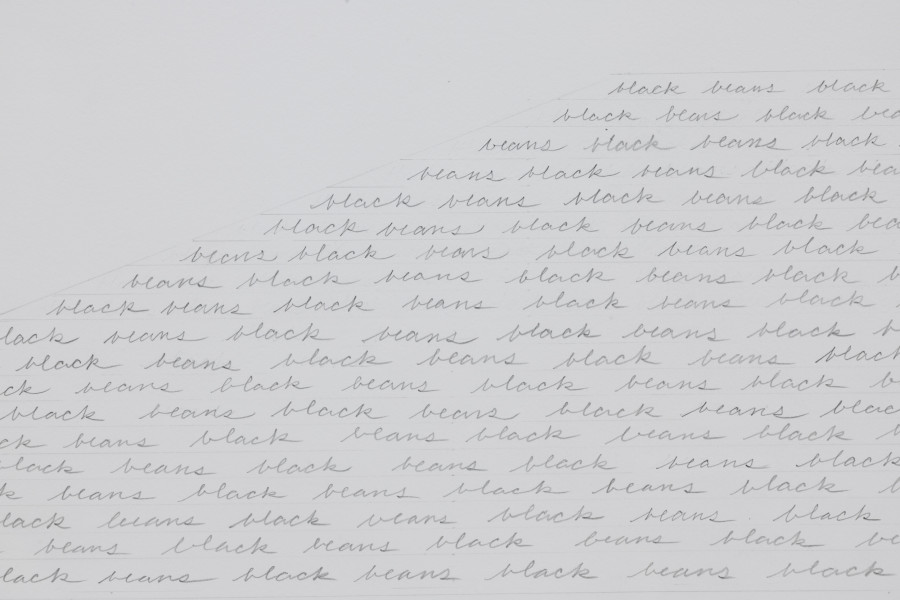 black beans black
black beans black
beans black beans black
beans black beans black
black beans black beans black
black beans black beans black
beans black beans black beans black
beans black beans black beans black
black beans black beans black beans black
black beans black beans black beans black
black beans black beans black beans black
beans black beans black beans black
black beans black beans black beans black
beans black beans black beans black
black beans black beans black beans black
beans black beans black beans black
black beans black beans black beans black
beans black beans black beans black
black beans black beans black beans black